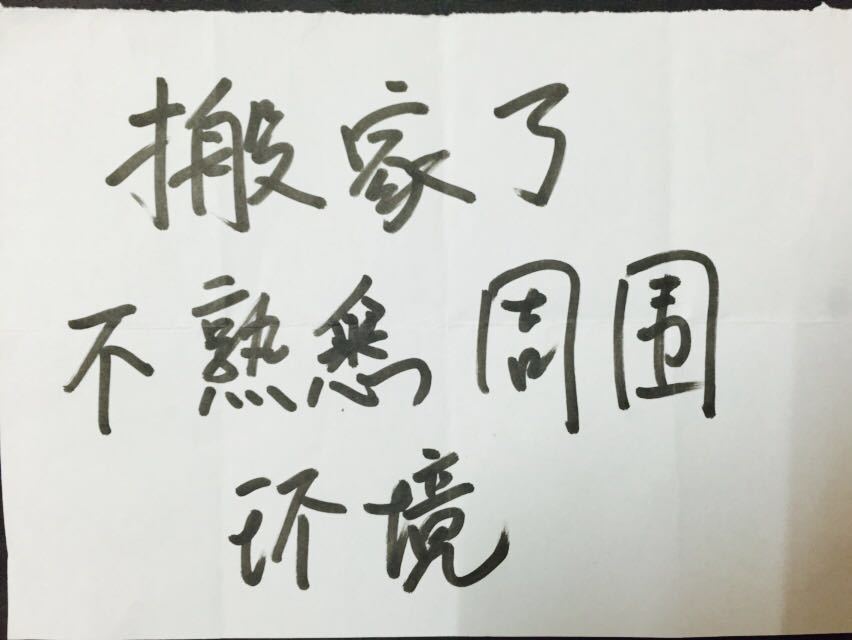 搬家了
不熟悉周围
环境